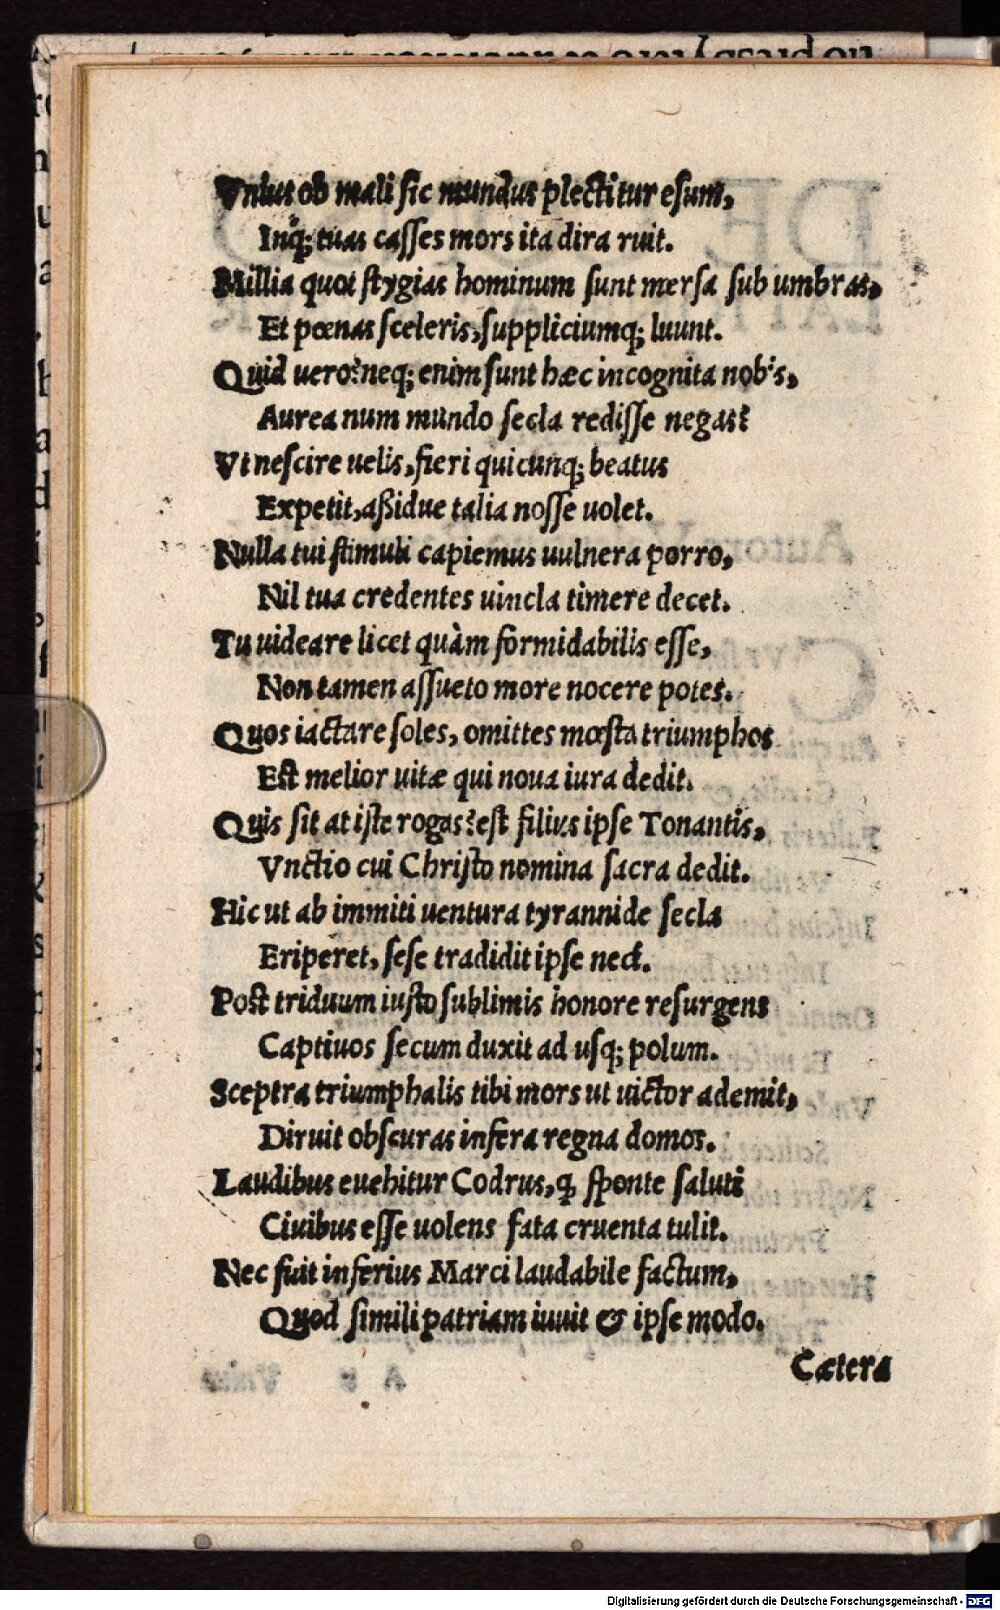 Vnius ob mali sic mundus plectitur esum,
Inq; tuas casses mors ita dira ruit.
Millia quot stygias hominum sunt mersa sub umbras,
Et pœnas sceleris, suppliciumq; luunt.
Quid uero? neq; enim sunt hæc incognita nobis,
Aurea num mundo secla redisse negas?
Vt nescire uelis, fieri quicunq; beatus
Expetit, aßidue talia nosse uolet.
Nulla tui stimuli capiemus uulnera porro,
Nil tua credentes uincla timere decet.
Tu uideare licet quàm formidabilis esse,
Non tamen assueto more nocere potes.
Quos iactare soles, omittes mœsta triumphos
Est melior uitæ qui noua iura dedit.
Quis sit at iste rogas? est filius ipse Tonantis,
Vnctio cui Christo nomina sacra dedit.
Hic ut ab immiti uentura tyrannide secla
Eriperet, sese tradidit ipse neci.
Post triduum iusto sublimis honore resurgens
Captiuos secum duxit ad usq; polum.
Sceptra triumphalis tibi mors ut uictor ademit,
Diruit obscuras infera regna domos.
Laudibus euehitur Codrus, ꝙ sponte saluti
Ciuibus esse uolens fata cruenta tulit.
Nec fuit inferius Marci laudabile factum,
Quod simili patriam iuuit & ipse modo.
Cætera
Digitalisierung gefördert durch die Deutsche Forschungsgemeinschaft - DFG